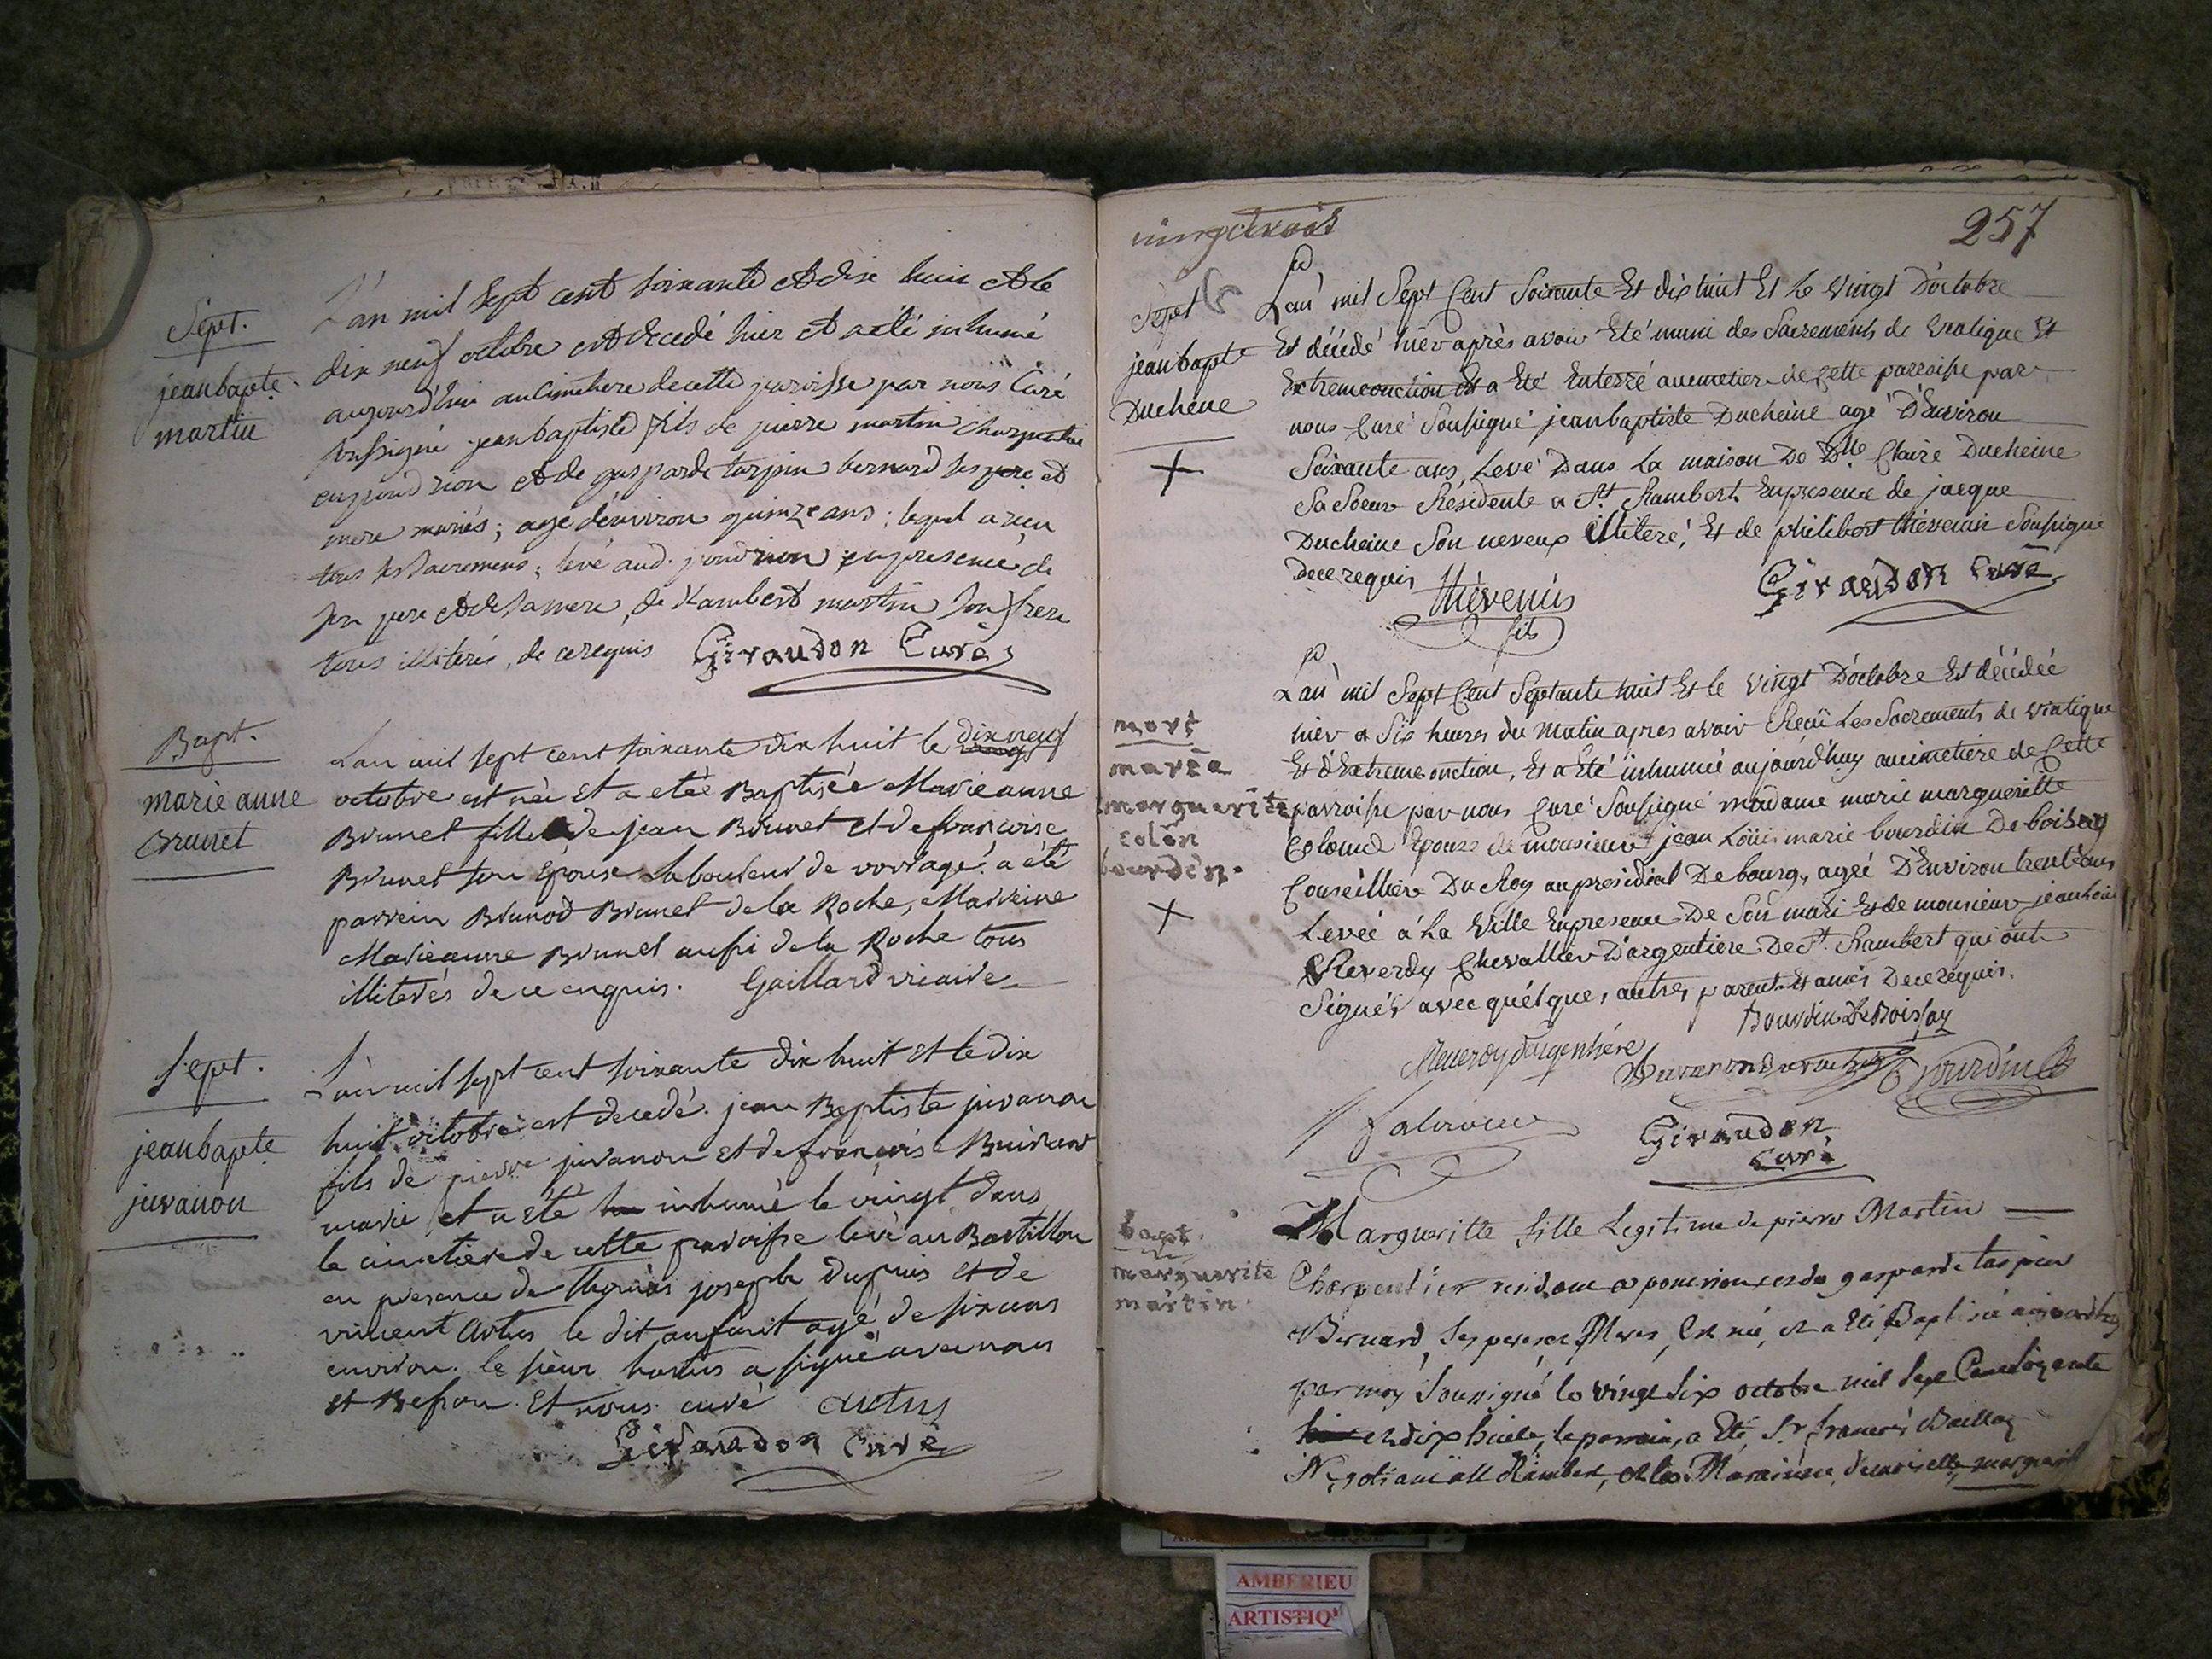 Sept.
jean bapte.
martin
L'an mil sept cent soixante et dix huit et le
dix neuf octobre est decedé hier et a eté inhumé
aujourd'hui au cimitiere de cette paroisse par nous Curé
soussigné jean baptiste fils de pierre martin charpentier
en et de gasparde tarpin bernard ses pere et
mere mariés; agé d'environ quinze ans; lequel a reçu
tous les sacremens; levé aud. en presence de
son pere et de sa mere, de Rambert martin son frere
tous illiterés, de ce requis Giraudon Curé
Bapt.
marie anne
Brunet
L'an mil sept cent soixante dix huit le dix neuf
octobre est née et a etée Baptisée Marie anne
Brunet fille de jean Brunet et de francoise
Brunet son Epouse Laboureur de vorrage: a été
parrein Brunod Brunet de la Roche, Marreine
Marieanne Brunet aussi de la Roche tous
illiterés de ce enquis. Gaillard vicaire
Sept.
jean bapte
juvanon
L'an mil sept cent soixante dix huit et le dix
huit octobre est decedé jean Baptiste juvanon
fils de pierre juvanon et de françoise
marié et a été inhumé le vingt dans
le cimetiere de cette paroisse levé au Bastillon
en presence de Thomas joseph dupuis et de
vincent Autus le dit anfant agé de six ans
environ. le sieur hortus a signé avec nous
et Et nous curé autus
Giraudon Curé
vingt trois
257
Sept
jean bapte
Duchêne
+
L'an mil Sept Cent Soixante Et dix huit Et le vingt D'octobre
Est décédé hier après avoir Eté muni des Sacrements de viatique Et
Extremeonction Et a Eté Enterré au cimetiere de Cette parroisse par
nous Curé Soussigné jean baptiste Ducheine agé D'Environ
Soixante ans, Levé Dans la maison De Dlle Claire Ducheine
Sa Soeur Résidente a St. Rambert En presence de jacque
Ducheine Son neveux illiteré, Et de philibert thévenin Soussigné
De ce requis Thévenin Giraudon Curé
fils
mort
marie
marguerite
colon
bourdin.
+
L'an mil Sept Cent Septante huit Et le vingt D'octobre Est décédée
hier a Six heures du Matin apres avoir Reçü Les Sacrements de viatique
Et d'Extreme onction, Et a Eté inhumée aujourd'huy au cimetiere de Cette
parroisse par nous Curé Soussigné madame marie marguerille
Epouse de monsieur jean Loüis marie bourdin De boissay
Conseillier Du Roy au presidial De bourg, ageé D'Environ trente ans
Levée a La Ville En presence De Son mari Et de monsieur jean louis
Reverdy Chevallier D'argentiere De St. Rambert qui ont
Signés avec quelques autres parents Et amis De ce requis.
Bourdin De Boissay
Reverdy d'argentiere Bourdin
Giraudon
Curé
bapt.
marguerite
martin.
Marguerille fille Legitime de pierre Martin
Charpentier residant a et de gasparde tarpin
Bernard, Ses pere et Meres, Est née, et a Eté Baptisée
par moy Soussigné le vingt Six octobre mil Sept Cent Soixante
et dix huict, le parrain, a Eté Sr. françois
Negotiant a St Rambert, et la Maraine, demoiselle, marguerit
AMBERIEU
ARTISTIQ